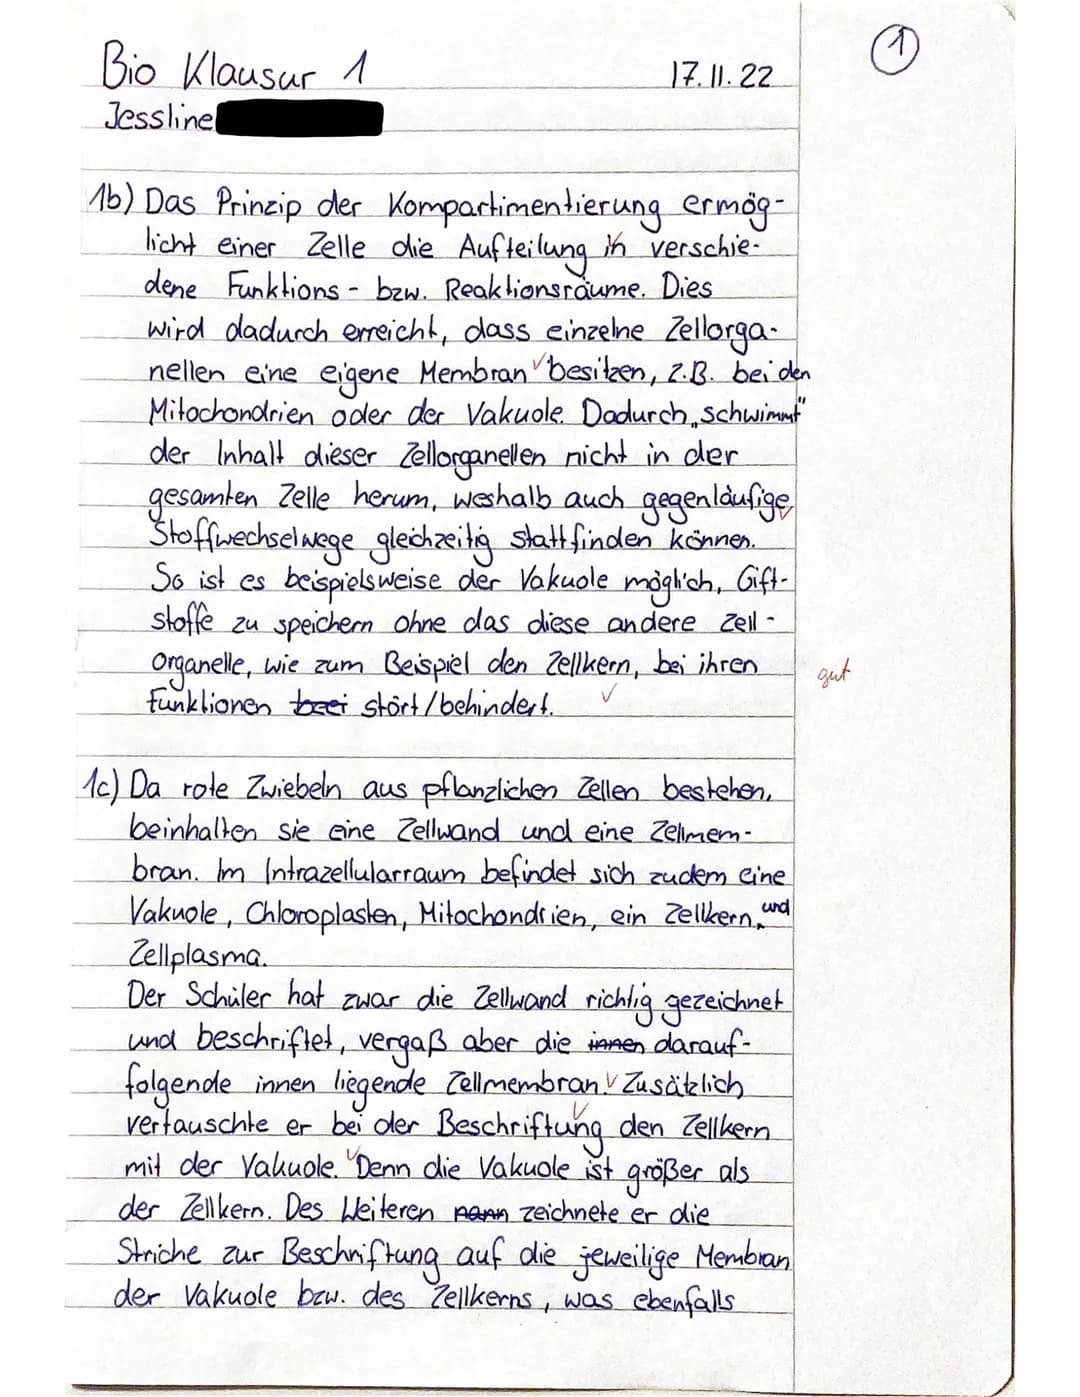 ①
Bio Klausur 1 17.11.22
Jessline
1b) Das Prinzip der Kompartimentierung ermög-
licht einer Zelle die Aufteilung in verschie-
dene Funktions- bzw. Reaktionsräume. Dies
wird dadurch erreicht, dass einzelne Zellorga-
nellen eine eigene Membran besitzen, z.B. bei den
Mitochondrien oder der Vakuole. Dadurch „schwimmt"
der Inhalt dieser Zellorganellen nicht in der
gesamten Zelle herum, weshalb auch gegenläufige
Stoffwechselwege gleichzeitig stattfinden können.
So ist es beispielsweise der Vakuole möglich, Gift-
stoffe zu speichern ohne das diese andere Zell-
organelle, wie zum Beispiel den Zellkern, bei ihren
gut
Funktionen stört/behindert.
1c) Da rote Zwiebeln aus pflanzlichen Zellen bestehen,
beinhalten sie eine Zellwand und eine Zellmem-
bran. Im Intrazellularraum befindet sich zudem eine
Vakuole, Chloroplasten, Mitochondrien, ein Zellkern, und
Zellplasma.
Der Schüler hat zwar die Zellwand richtig gezeichnet
und beschriftet, vergaß aber die innen darauf-
folgende innen liegende Zellmembran. Zusätzlich
vertauschte er bei der Beschriftung den Zellkern
mit der Vakuole. Denn die Vakuole ist größer als
der Zellkern. Des Weiteren nann zeichnete er die
Striche zur Beschriftung auf die jeweilige Membran
der Vakuole bzw. des Zellkerns, was ebenfalls